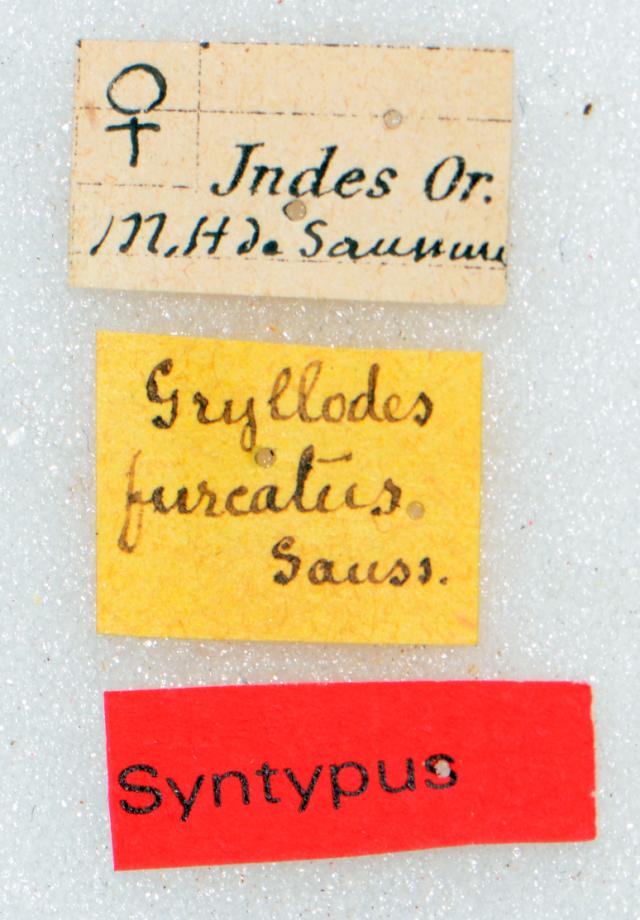 ♀
Indes Or.
M. H de Saussure
Gryllodes
furcatus.
Sauss.
Syntypus